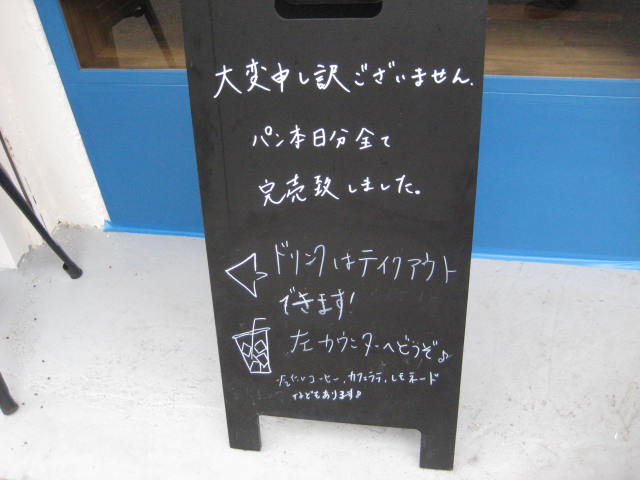 大変申し訳ございません.
パン本日分全て
完売致しました。
ドリンクはテイクアウト
できます!
左カウンターへどうぞ♪
冷たいコーヒー、カフェラテ、レモネード
などもあります♪